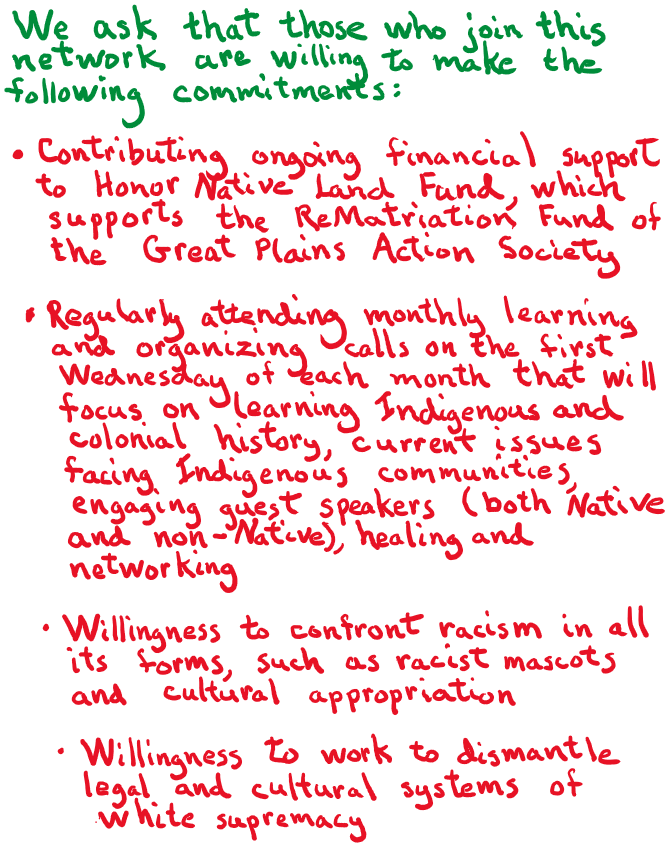 We ask that those who join this
network are willing to make the
following commitments:
• Contributing ongoing financial support
to Honor Native Land Fund, which
supports the ReMatriation Fund of
the Great Plains Action Society
• Regularly attending monthly learning
and organizing calls on the first
Wednesday of each month that will
focus on learning Indigenous and
colonial history, current issues
facing Indigenous communities,
engaging guest speakers (both Native
and non-Native), healing and
networking
• Willingness to confront racism in all
its forms, such as racist mascots
and cultural appropriation
• Willingness to work to dismantle
legal and cultural systems of
white supremacy